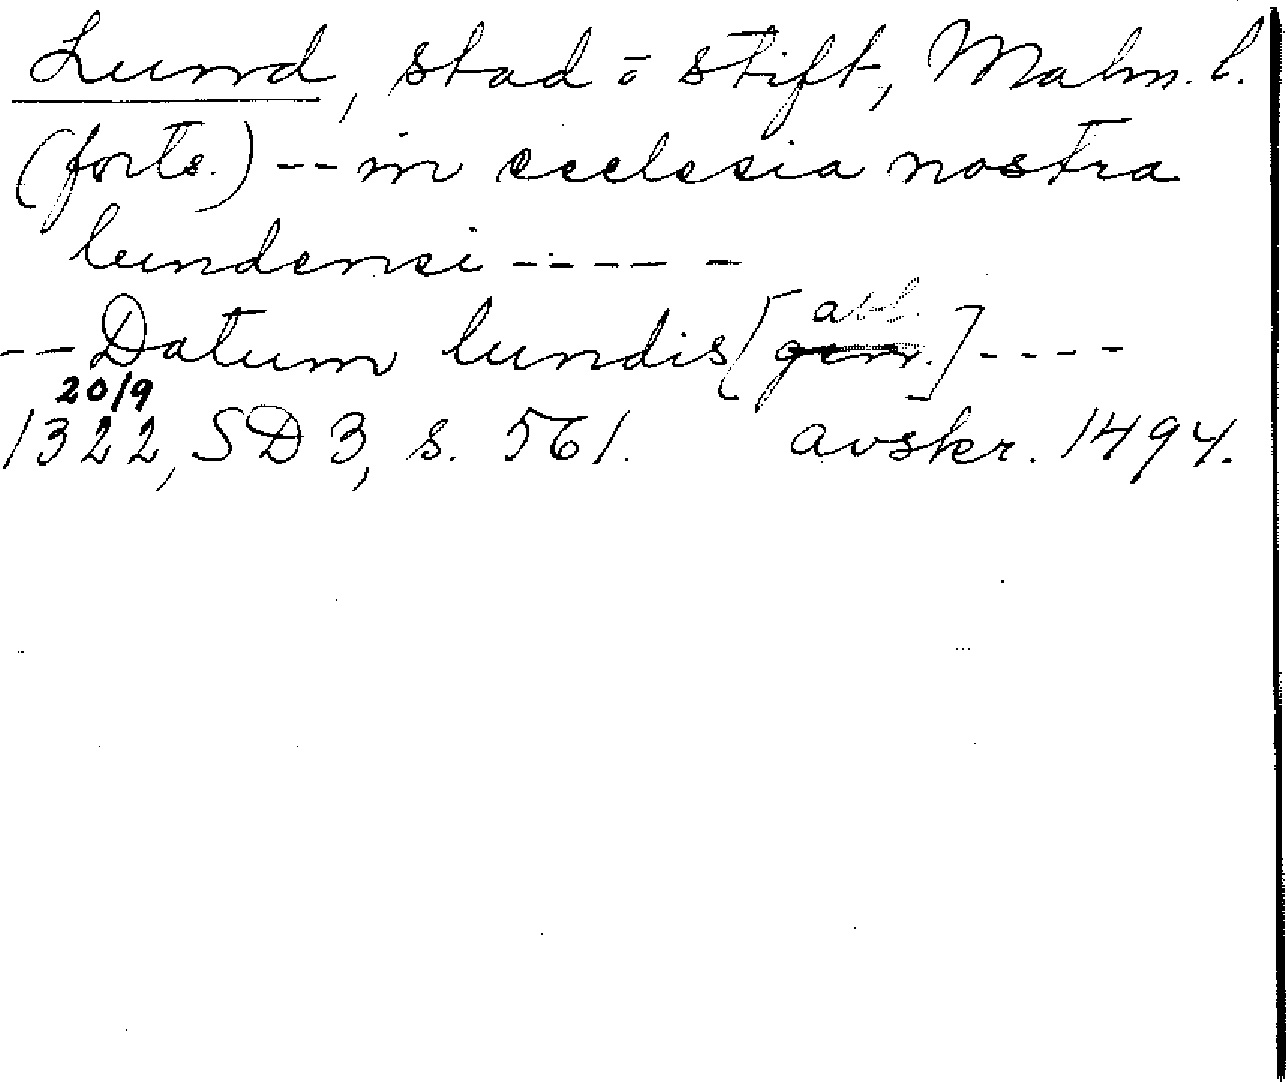 Lund, stad o stift, Malm. l.
(forts.) -- in ecclesia nostra
lundensi -----
abl.
-- Datum lundis [gen.] ----
20/9
1322, SD 3, s. 561. avskr. 1494.